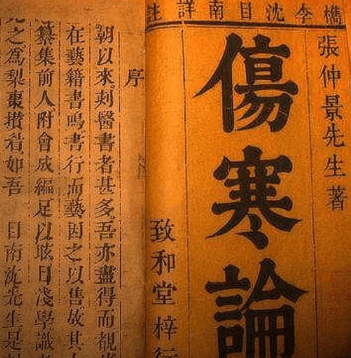 檇李沈目南詳註
張仲景先生著
傷寒論
致和堂梓行
序
朝以來刻醫書者甚多吾亦盡得而觀
在藝籍書鳴書行而藝因之以售故其
纂集前人附會成編足以眩目淺學
之爲梨棗攢眉如吾 目南沈先生是